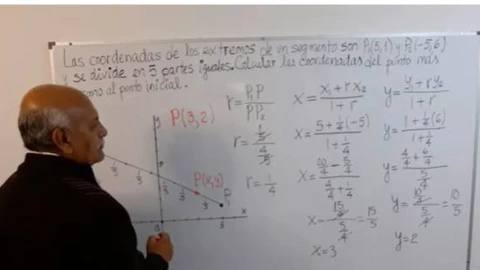 Las coordenadas de los extremos de un segmento son P₁(5,1) y P₂(-5,6)
y se divide en 5 partes iguales. Calcular las coordenadas del punto más
al punto inicial.
P(3,2)
r = P₁P / PP₂
r = 1/5 / 4/5
r = 1/4
x = x₁ + r x₂ / 1 + r
x = 5 + 1/4(-5) / 1 + 1/4
x = 20/4 - 5/4 / 4/4 + 1/4
x = 15/4 / 5/4 = 15/5
x = 3
y = y₁ + r y₂ / 1 + r
y = 1 + 1/4(6) / 1 + 1/4
y = 4/4 + 6/4 / 5/4
y = 10/4 / 5/4 = 10/5
y = 2
y
P(x,y)
P₁
1/5
1/5
1/5
1/5
x
0
5